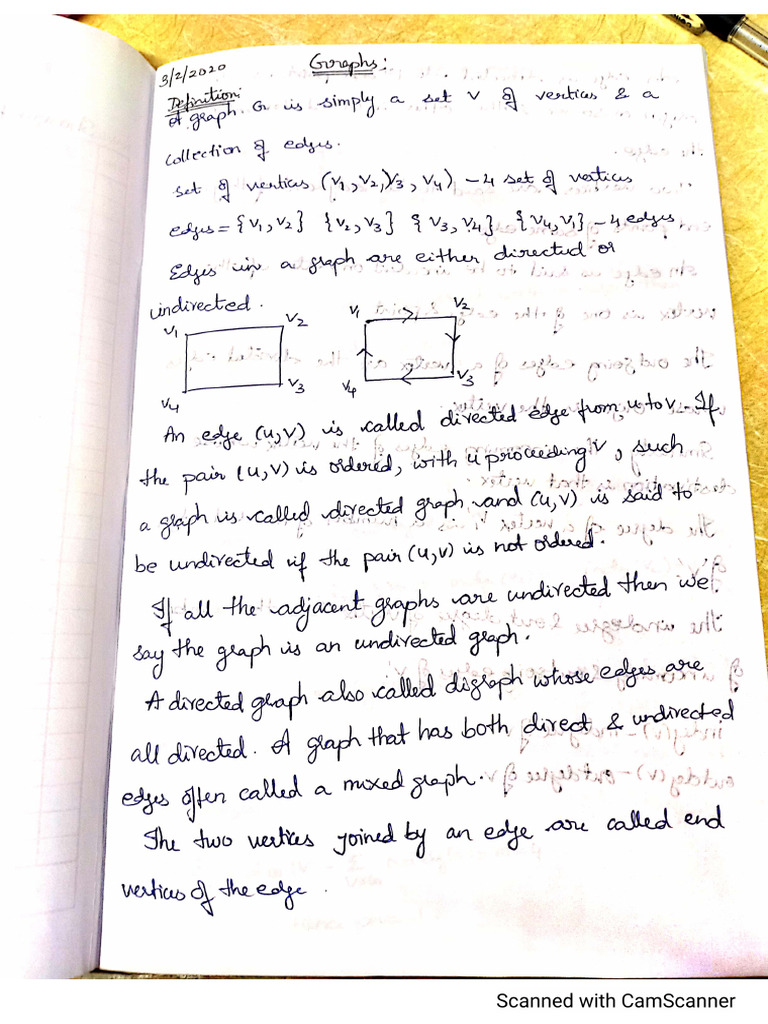 3/2/2020
Graphs:
Definition:
A graph G is simply a set V of vertices & a
collection of edges.
set of vertices (V1, V2, V3, V4) - 4 set of vertices
edges = {V1, V2} {V2, V3} {V3, V4} {V4, V1} - 4 edges
Edges in a graph are either directed or
undirected.
V1 V2 V1 V2
V4 V3 V4 V3
An edge (u,v) is called directed edge from u to v. If
the pair (u,v) is ordered, with u proceeding V, such
a graph is called directed graph and (u,v) is said to
be undirected if the pair (u,v) is not ordered.
If all the adjacent graphs are undirected then we
say the graph is an undirected graph.
A directed graph also called digraph whose edges are
all directed. A graph that has both direct & undirected
edges often called a mixed graph.
The two vertices joined by an edge are called end
vertices of the edge.
Scanned with CamScanner